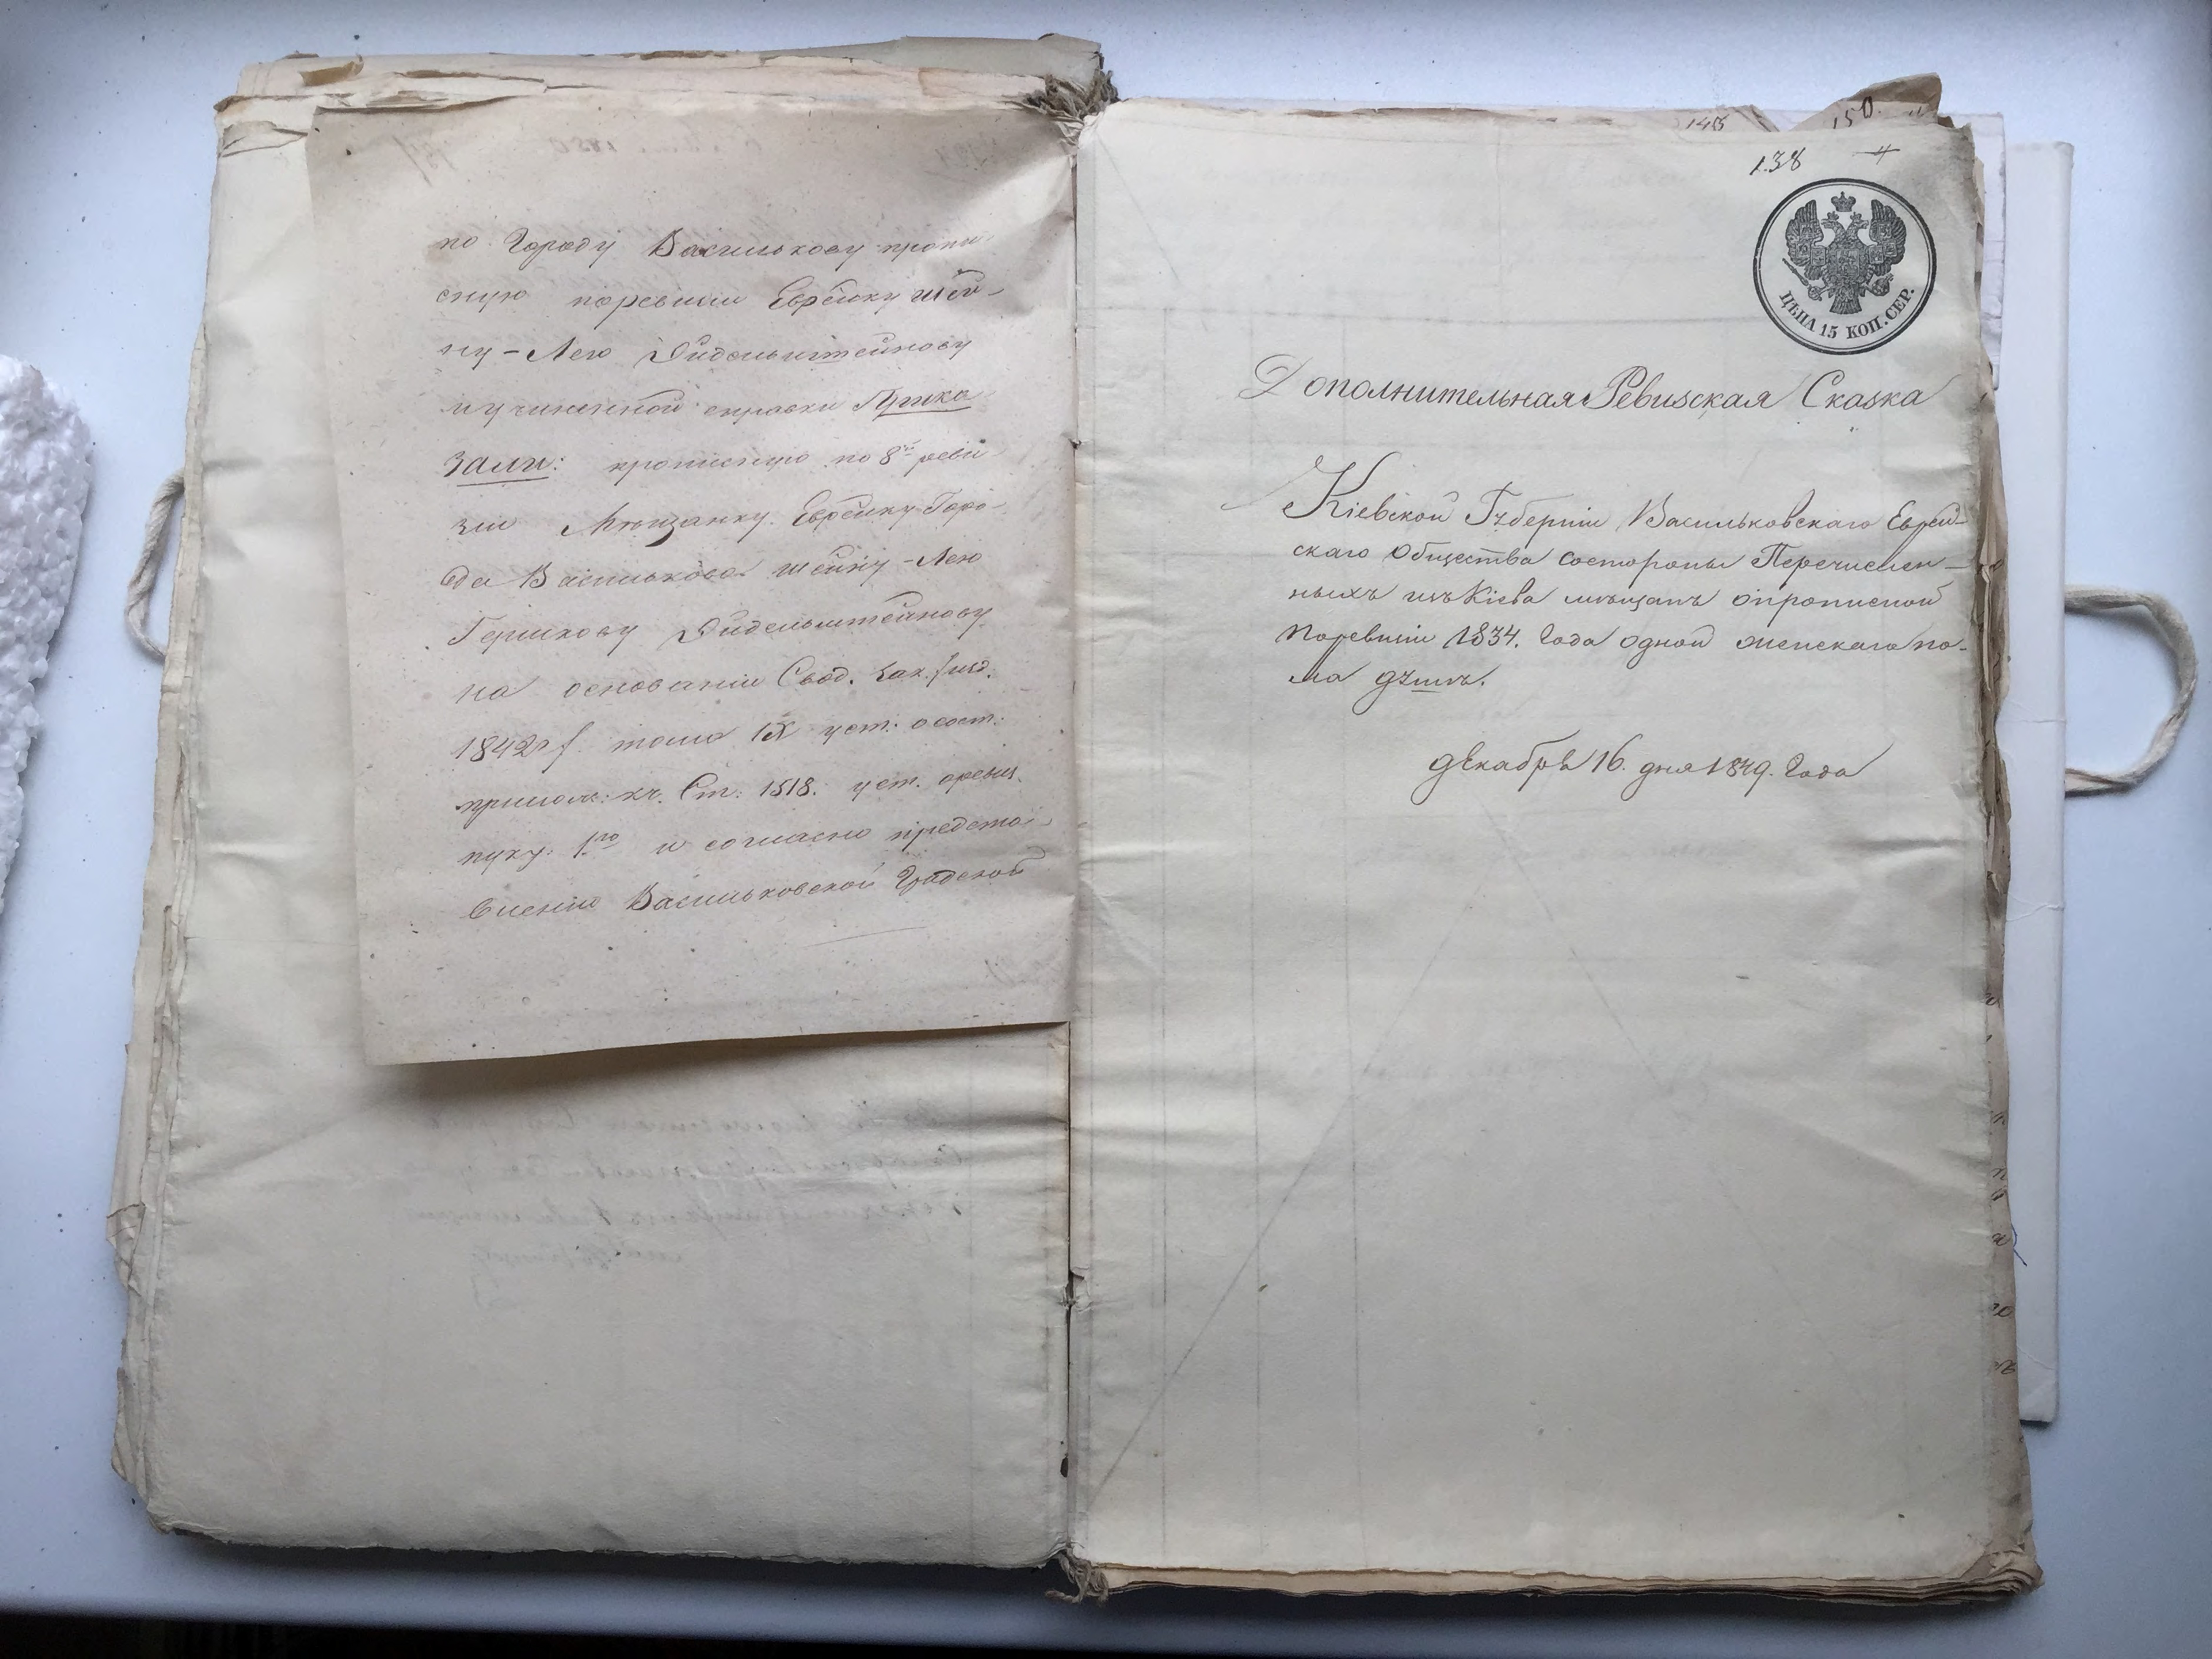 по Городу Василькову пропи-
сную поревизіи Еврейку Шей-
ну-Лею Эйдельштейнову
изучиненной справки Прика
зали: прописную по 8й реви
зіи Мѣщанку Еврейку Горо-
да Василькова Шейну-Лею
Гершкову Эйдельштейнову
на основаніи Свод. Зак. /изд.
1842 г/. тома IX уст. о сост.
прилож: къ Ст: 1518. уст. оревиз.
пункт. 1го и согласно предста-
вленію Васильковской Градской
145
150.
138
4
ЦѢНА 15 КОП. СЕР.
Дополнительная Ревизская Сказка
Кіевской Губерніи Васильковскаго Еврей-
скаго Общества состороны Перечислен-
ныхъ изъ Кіева мѣщанъ опрописной
поревизіи 1834. Года одной женскаго по-
ла душѣ.
декабря 16. дня 1849. Года